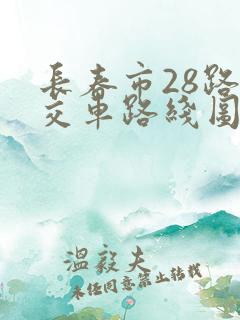 长春市28路
交车路线图
温毅夫
未经同意禁止转载